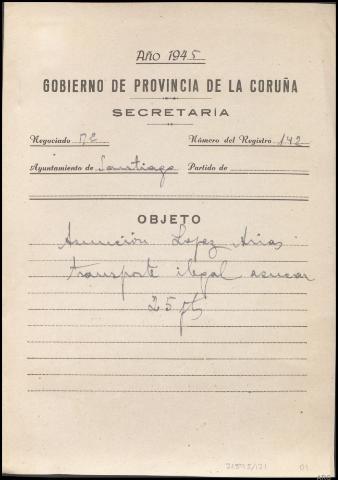 Año 1945
GOBIERNO DE PROVINCIA DE LA CORUÑA
SECRETARÍA
Negociado Número del Registro 142
Ayuntamiento de Santiago Partido de
OBJETO
Asunción Lopez Arias
transporte ilegal azucar
25 pts